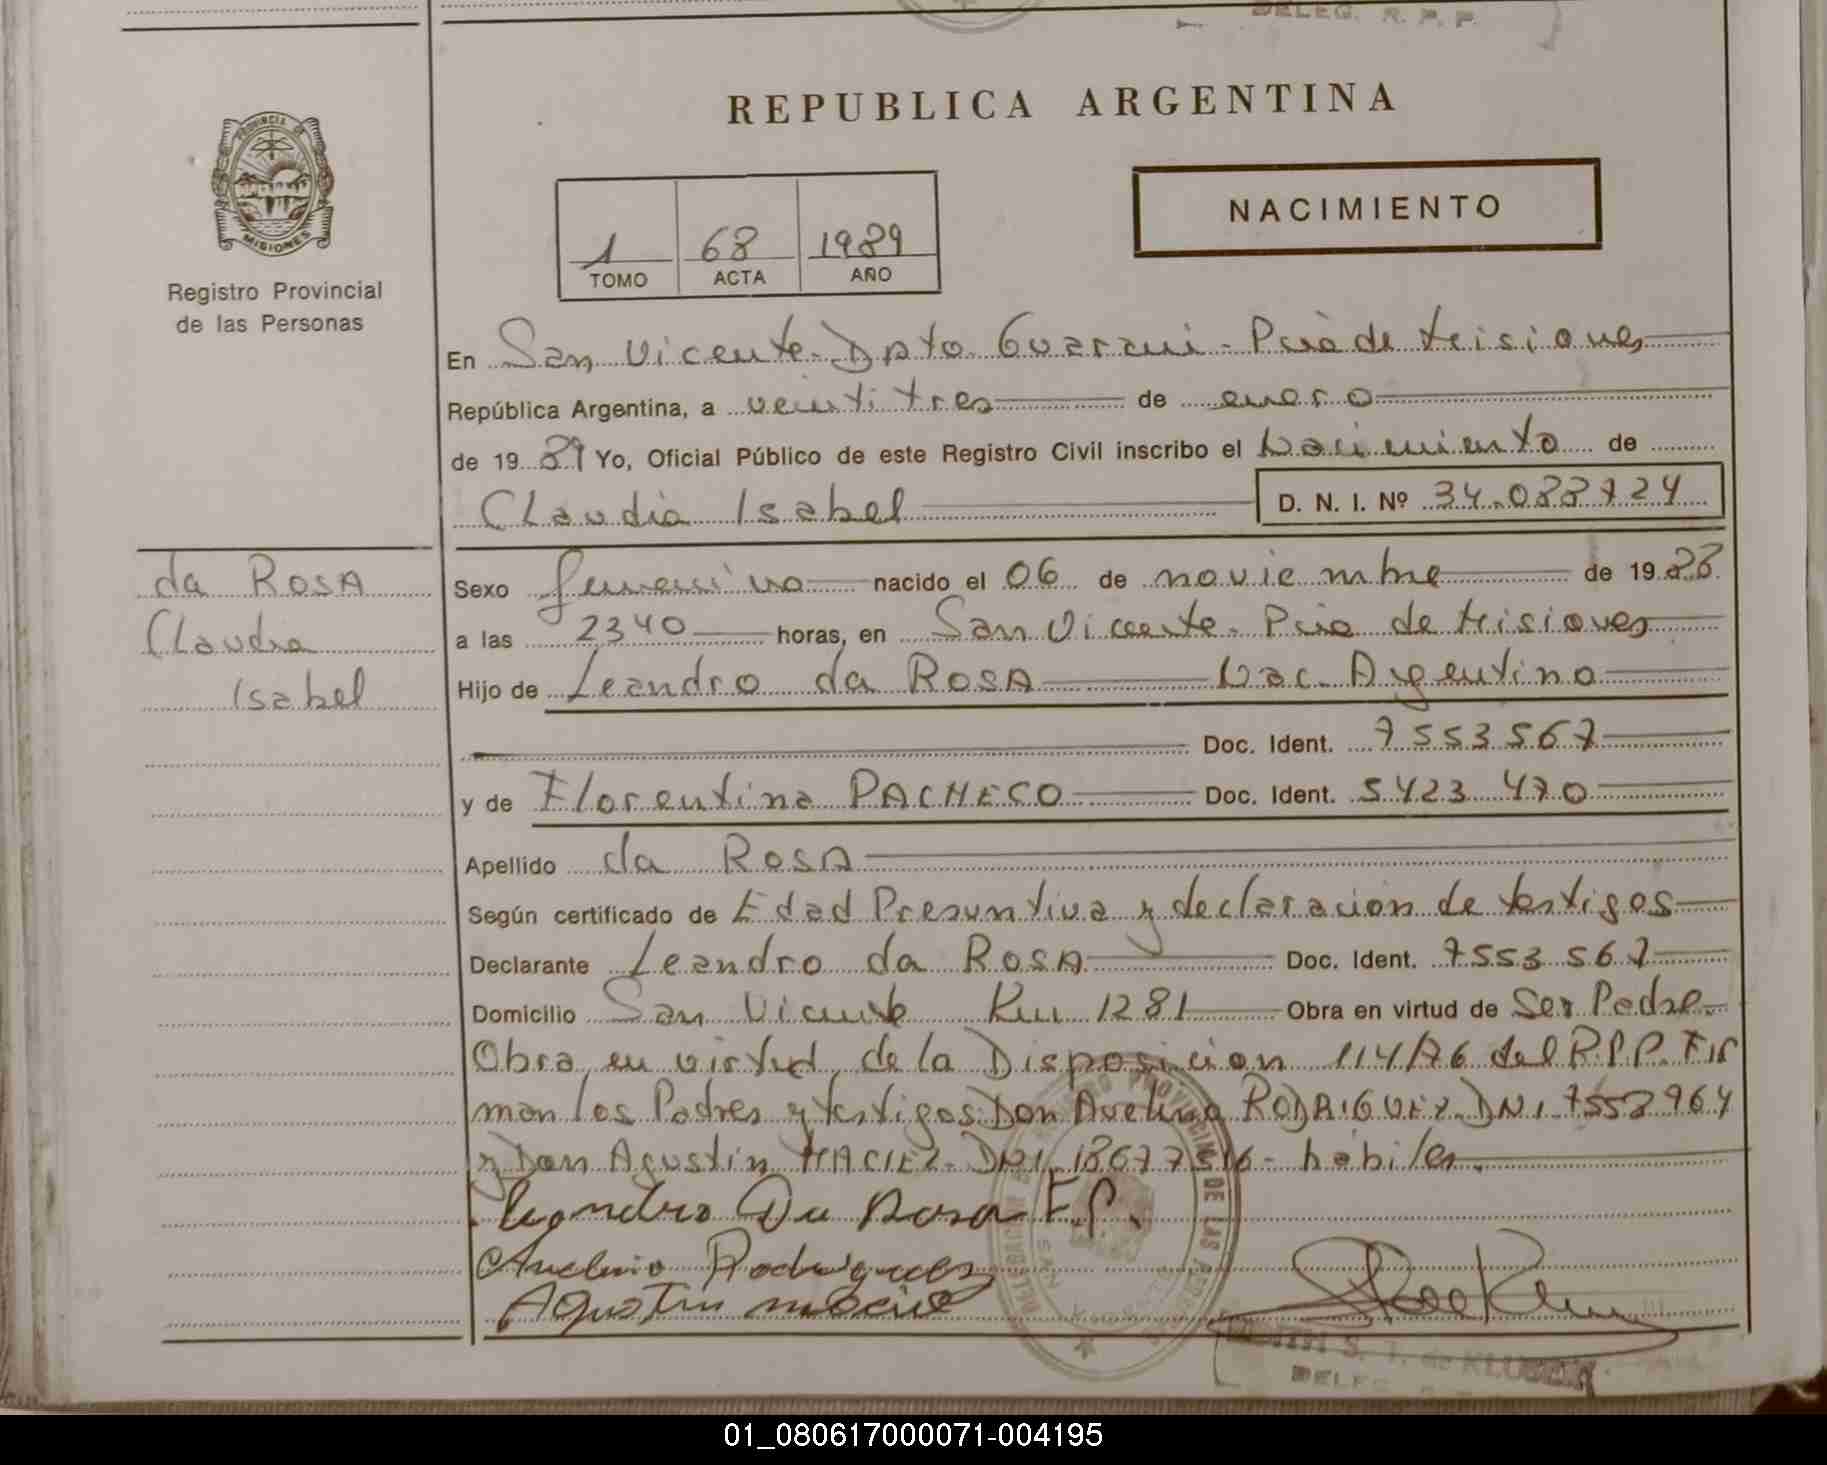 DELEG. R. P. P.
REPUBLICA ARGENTINA
PROVINCIA DE
MISIONES
Registro Provincial
de las Personas
NACIMIENTO
1 68 1989
TOMO ACTA AÑO
En San Vicente-Dpto Guarani-Pcia de Misiones
República Argentina, a veintitres de enero
de 19 89 Yo, Oficial Público de este Registro Civil inscribo el Nacimiento de
Claudia Isabel D. N. I. Nº 34.088724
da ROSA
Claudia
Isabel
Sexo femenino nacido el 06 de noviembre de 19 88
a las 2340 horas, en San Vicente-Pcia de Misiones
Hijo de Leandro da ROSA Nac. Argentino
Doc. Ident. 7553567
y de Florentina PACHECO Doc. Ident. 5423470
Apellido da ROSA
Según certificado de Edad Presuntiva y declaración de testigos
Declarante Leandro da ROSA Doc. Ident. 7553567
Domicilio San Vicente Km 1281 Obra en virtud de Ser Padre.
Obra en virtud de la Disposición 114/76 del R.P.P. Fir
man los Padres y testigos: Don Avelino RODRIGUEZ-DNI-7553964
y Don Agustín MACIEL-DNI-18677516-hábiles.
Leandro Da Rosa F.P.
Avelino Rodrigues
Agustin maciel
S. T. de KLUBER
DELEG.
01_080617000071-004195